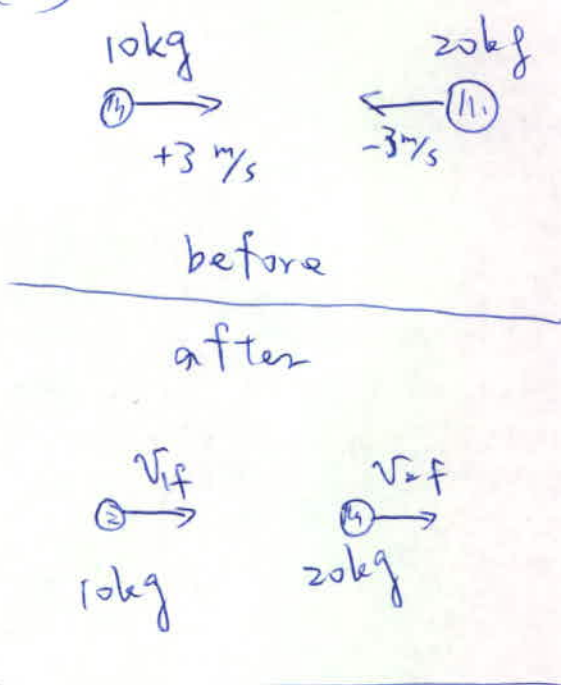 10kg 20kg
+3 m/s -3m/s
before
after
V1f V2f
10kg 20kg